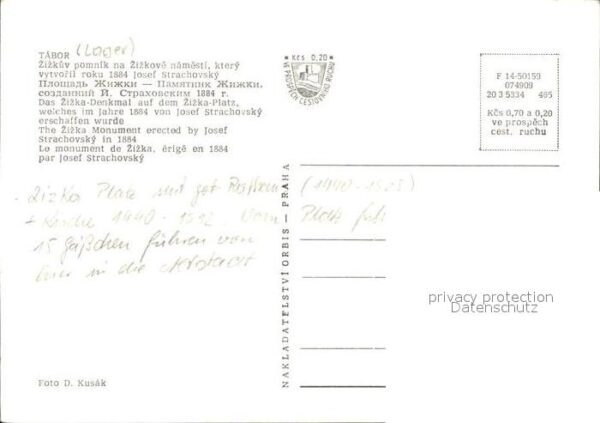 TÁBOR (Lager)
Žižkův pomník na Žižkově náměstí, který
vytvořil roku 1884 Josef Strachovský
Площадь Жижки — Памятник Жижки,
созданний Й. Страховским 1884 г.
Das Žižka-Denkmal auf dem Žižka-Platz,
welches im Jahre 1884 von Josef Strachovský
erschaffen wurde
The Žižka Monument erected by Josef
Strachovský in 1884
Le monument de Žižka, érigé en 1884
par Josef Strachovský
Kčs 0,20
VE PROSPĚCH CESTOVNÍHO RUCHU
F 14-50159
074909
20 3 5334 405
Kčs 0,70 a 0,20
ve prospěch
cest. ruchu
- Zizka Platz mit got
+ Kirche 1440 - Vom Platz
15 Gäßchen führen von
hier in die Altstadt
NAKLADATELSTVÍ ORBIS — PRAHA
privacy protection
Datenschutz
Foto D. Kusák